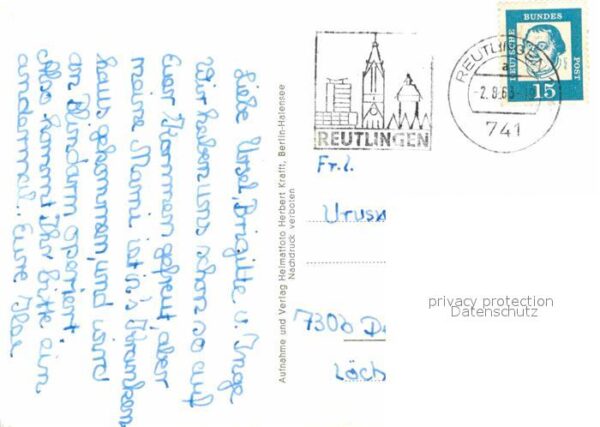 Liebe Ursel, Brigitte u. Inge
Wir haben uns schon so auf
Euer Kommen gefreut, aber
meine Mami ist in's Kranken
haus gekommen, und wird
am Blinddarm operiert.
Also kommt Ihr bitte ein
andermal. Eure Ilse
Aufnahme und Verlag Heimatfoto Herbert Krafft, Berlin-Halensee
Nachdruck verboten
REUTLINGEN
REUTLINGEN
741
DEUTSCHE
BUNDES
POST
15
Frl.
7300
Löch
privacy protection
Datenschutz